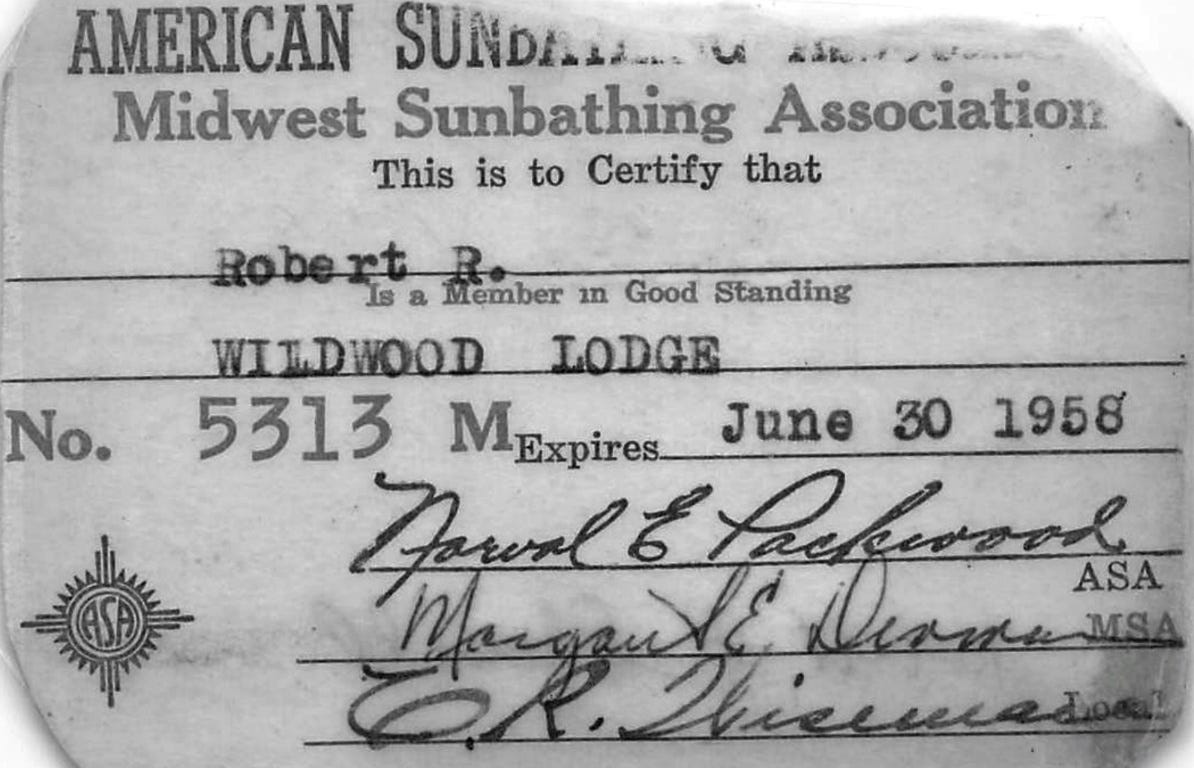 AMERICAN SUNBATHING
Midwest Sunbathing Association
This is to Certify that
Robert R.
Is a Member in Good Standing
WILDWOOD LODGE
No. 5313 M Expires June 30 1958
Norval E Packwood
ASA
ASA
Margaret E.
MSA
E. R. Wiseman
Local